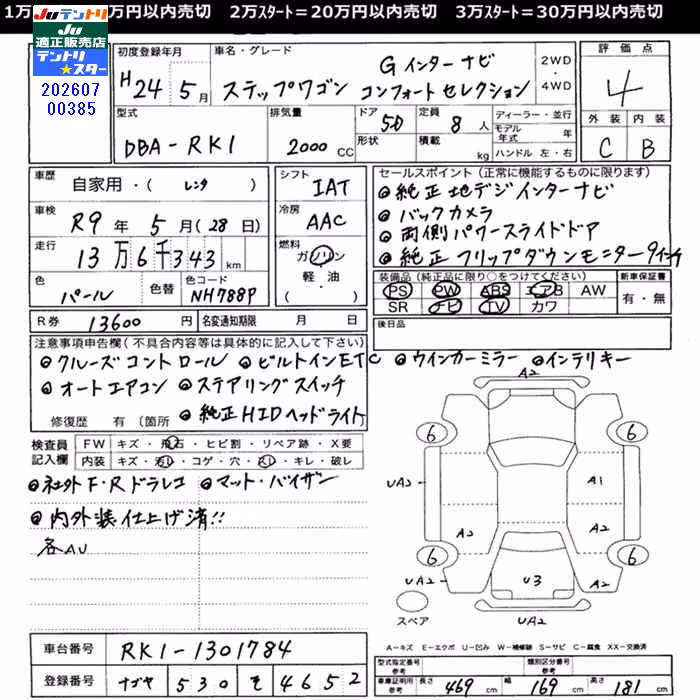 1万 万円以内売切 2万スタート＝20万円以内売切 3万スタート＝30万円以内売切
JU テントリ
JU
適正販売店
テントリ
スター
202607
00385
初度登録年月 車名・グレード 評価点
H24 5月 ステップワゴン Gインターナビ コンフォートセレクション 2WD・4WD 4
型式 排気量 ドア 形状 定員 積載 ディーラー・並行 外装 内装
DBA-RK1 2000cc 5D 8人 kg モデル年式 年 ハンドル 左・右 C B
車歴 自家用・(レンタ) シフト IAT
車検 R9年5月(28日) 冷房 AAC
走行 13万6千343km 燃料 ガソリン 軽・油 ( ・ )
色 パール 色替 色コード NH788P
R券 13600円 名変通知期限 月 日
セールスポイント(正常に機能するものに限ります)
●純正地デジインターナビ
●バックカメラ
●両側パワースライドドア
●純正フリップダウンモニター9インチ
装備品(純正品に限り○をつけてください) 新車保証書
PS PW ABS エアB AW 有・無
SR ナビ TV カワ
後日品
注意事項申告欄(不具合内容等は具体的に記入して下さい)
●クルーズコントロール ●ビルトインETC ●ウインカーミラー ●インテリキー
●オートエアコン ●ステアリングスイッチ
修復歴 有(箇所 ●純正HIDヘッドライト
検査員記入欄 FW キズ・飛石・ヒビ割・リペア跡・X要
内装 キズ・汚レ・コゲ・穴・スレ・キレ・破レ
●社外F・Rドラレコ ●マット・バイザー
●内外装仕上げ済!!
各AU
A2
6 6
UA3 A1
A2 A2
6 6
UA2 U3 A2
スペア UA2
A－キズ E－エクボ U－凹み W－補修跡 S－サビ C－腐食 XX－交換済
車台番号 RK1-1301784
登録番号 ナゴヤ 530 そ 4652
型式指定番号 参考 類別区分番号 参考
車庫証明用 参考 長さ 469cm 幅 169cm 高さ 181cm